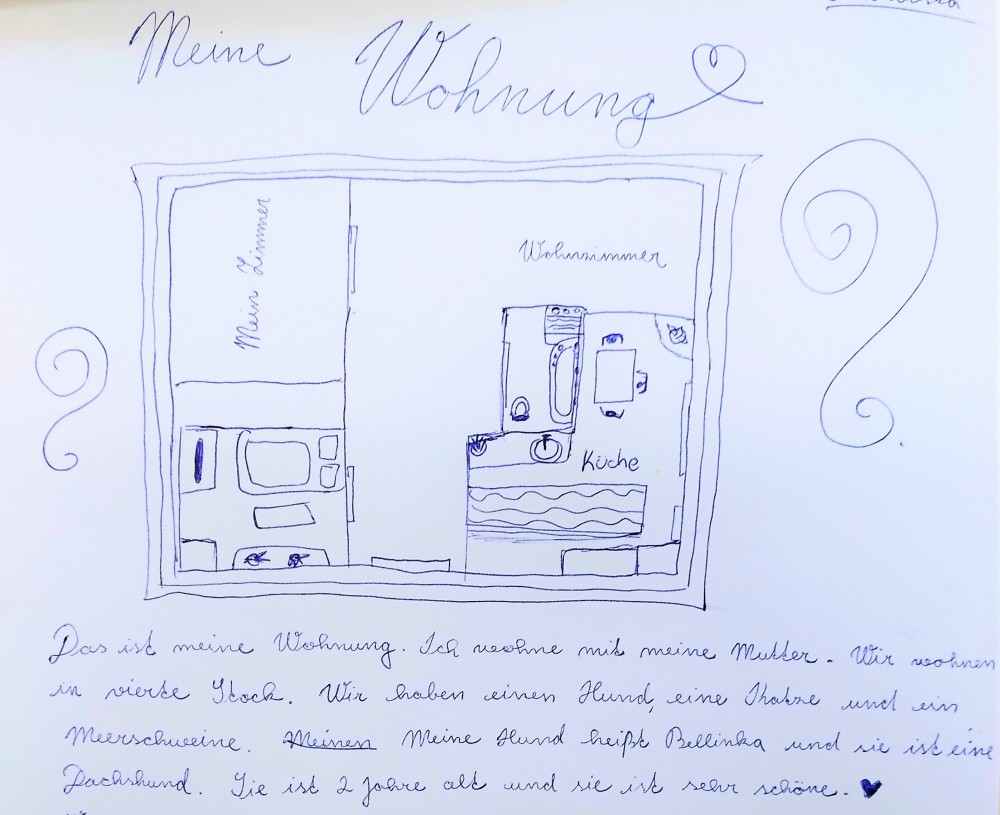 Meine Wohnung
Mein Zimmer
Wohnzimmer
Küche
Das ist meine Wohnung. Ich wohne mit meine Mutter. Wir wohnen
in vierte Stock. Wir haben einen Hund, eine Khatze und ein
Meerschweine. Meinen Meine Hund heißt Bellinka und sie ist eine
Dachshund. Sie ist 2 Jahre alt und sie ist sehr schöne.